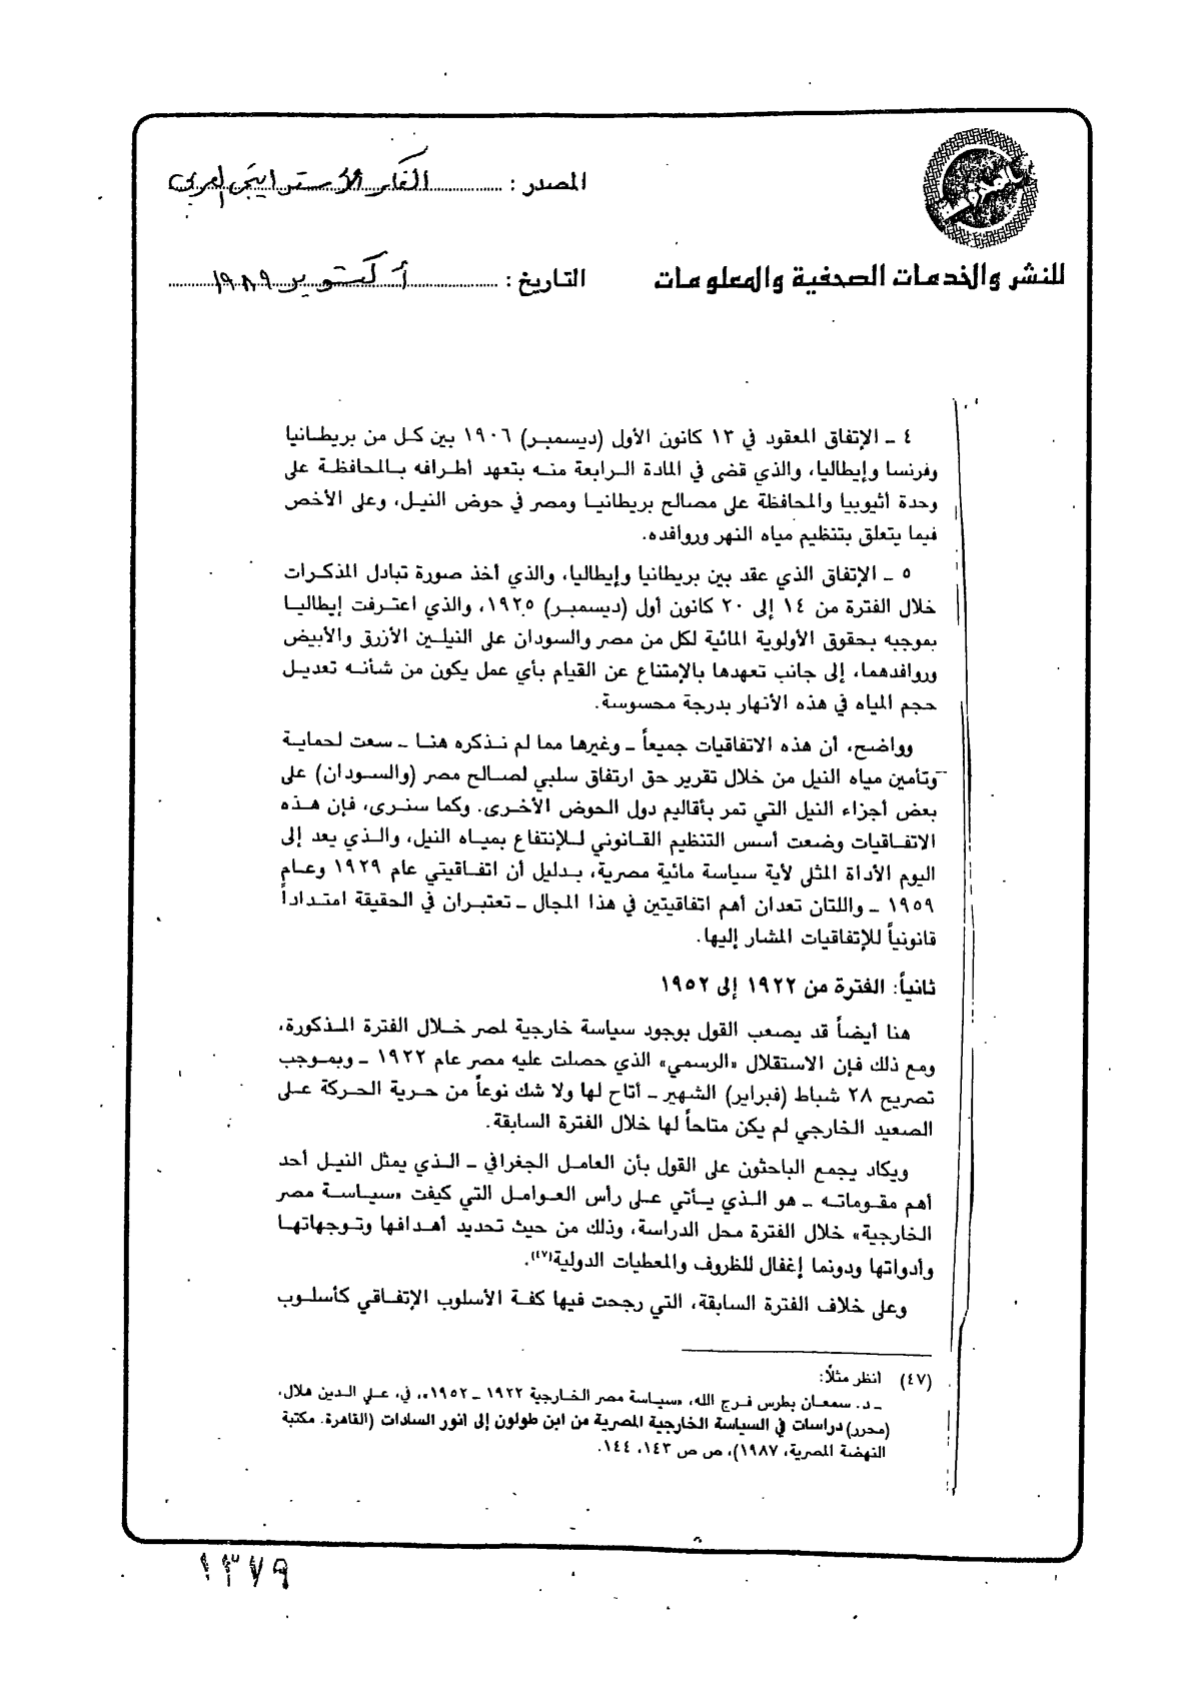 المصدر : الفكر الاستراتيجي العربي
للنشر والخدمات الصحفية والمعلومات
التاريخ : أكتوبر ١٩٨٩
٤ ـ الإتفاق المعقود في ١٣ كانون الأول (ديسمبر) ١٩٠٦ بين كل من بريطانيا
وفرنسا وإيطاليا، والذي قضى في المادة الرابعة منه بتعهد أطرافه بالمحافظة على
وحدة أثيوبيا والمحافظة على مصالح بريطانيا ومصر في حوض النيل، وعلى الأخص
فيما يتعلق بتنظيم مياه النهر وروافده.
٥ ـ الإتفاق الذي عقد بين بريطانيا وإيطاليا، والذي أخذ صورة تبادل المذكرات
خلال الفترة من ١٤ إلى ٢٠ كانون أول (ديسمبر) ١٩٢٥، والذي اعترفت إيطاليا
بموجبه بحقوق الأولوية المائية لكل من مصر والسودان على النيلين الأزرق والأبيض
وروافدهما، إلى جانب تعهدها بالإمتناع عن القيام بأي عمل يكون من شأنه تعديل
حجم المياه في هذه الأنهار بدرجة محسوسة.
وواضح، أن هذه الاتفاقيات جميعاً ـ وغيرها مما لم نذكره هنا ـ سعت لحماية
وتأمين مياه النيل من خلال تقرير حق ارتفاق سلبي لصالح مصر (والسودان) على
بعض أجزاء النيل التي تمر بأقاليم دول الحوض الأخرى. وكما سنرى، فإن هذه
الاتفاقيات وضعت أسس التنظيم القانوني للإنتفاع بمياه النيل، والذي يعد إلى
اليوم الأداة المثلى لأية سياسة مائية مصرية، بدليل أن اتفاقيتي عام ١٩٢٩ وعام
١٩٥٩ ـ واللتان تعدان أهم اتفاقيتين في هذا المجال ـ تعتبران في الحقيقة امتداداً
قانونياً للإتفاقيات المشار إليها.
ثانياً: الفترة من ١٩٢٢ إلى ١٩٥٢
هنا أيضاً قد يصعب القول بوجود سياسة خارجية لمصر خلال الفترة المذكورة،
ومع ذلك فإن الاستقلال «الرسمي» الذي حصلت عليه مصر عام ١٩٢٢ ـ وبموجب
تصريح ٢٨ شباط (فبراير) الشهير ـ أتاح لها ولا شك نوعاً من حرية الحركة على
الصعيد الخارجي لم يكن متاحاً لها خلال الفترة السابقة.
ويكاد يجمع الباحثون على القول بأن العامل الجغرافي ـ الذي يمثل النيل أحد
أهم مقوماته ـ هو الذي يأتي على رأس العوامل التي كيفت «سياسة مصر
الخارجية» خلال الفترة محل الدراسة، وذلك من حيث تحديد أهدافها وتوجهاتها
وأدواتها ودونما إغفال للظروف والمعطيات الدولية(٤٧).
وعلى خلاف الفترة السابقة، التي رجحت فيها كفة الأسلوب الإتفاقي كأسلوب
(٤٧) أنظر مثلاً:
ـ د. سمعان بطرس فرج الله، «سياسة مصر الخارجية ١٩٢٢ ـ ١٩٥٢»، في، علي الدين هلال،
(محرر) دراسات في السياسة الخارجية المصرية من ابن طولون إلى أنور السادات (القاهرة. مكتبة
النهضة المصرية، ١٩٨٧)، ص ص ١٤٣، ١٤٤.
١٣٧٩